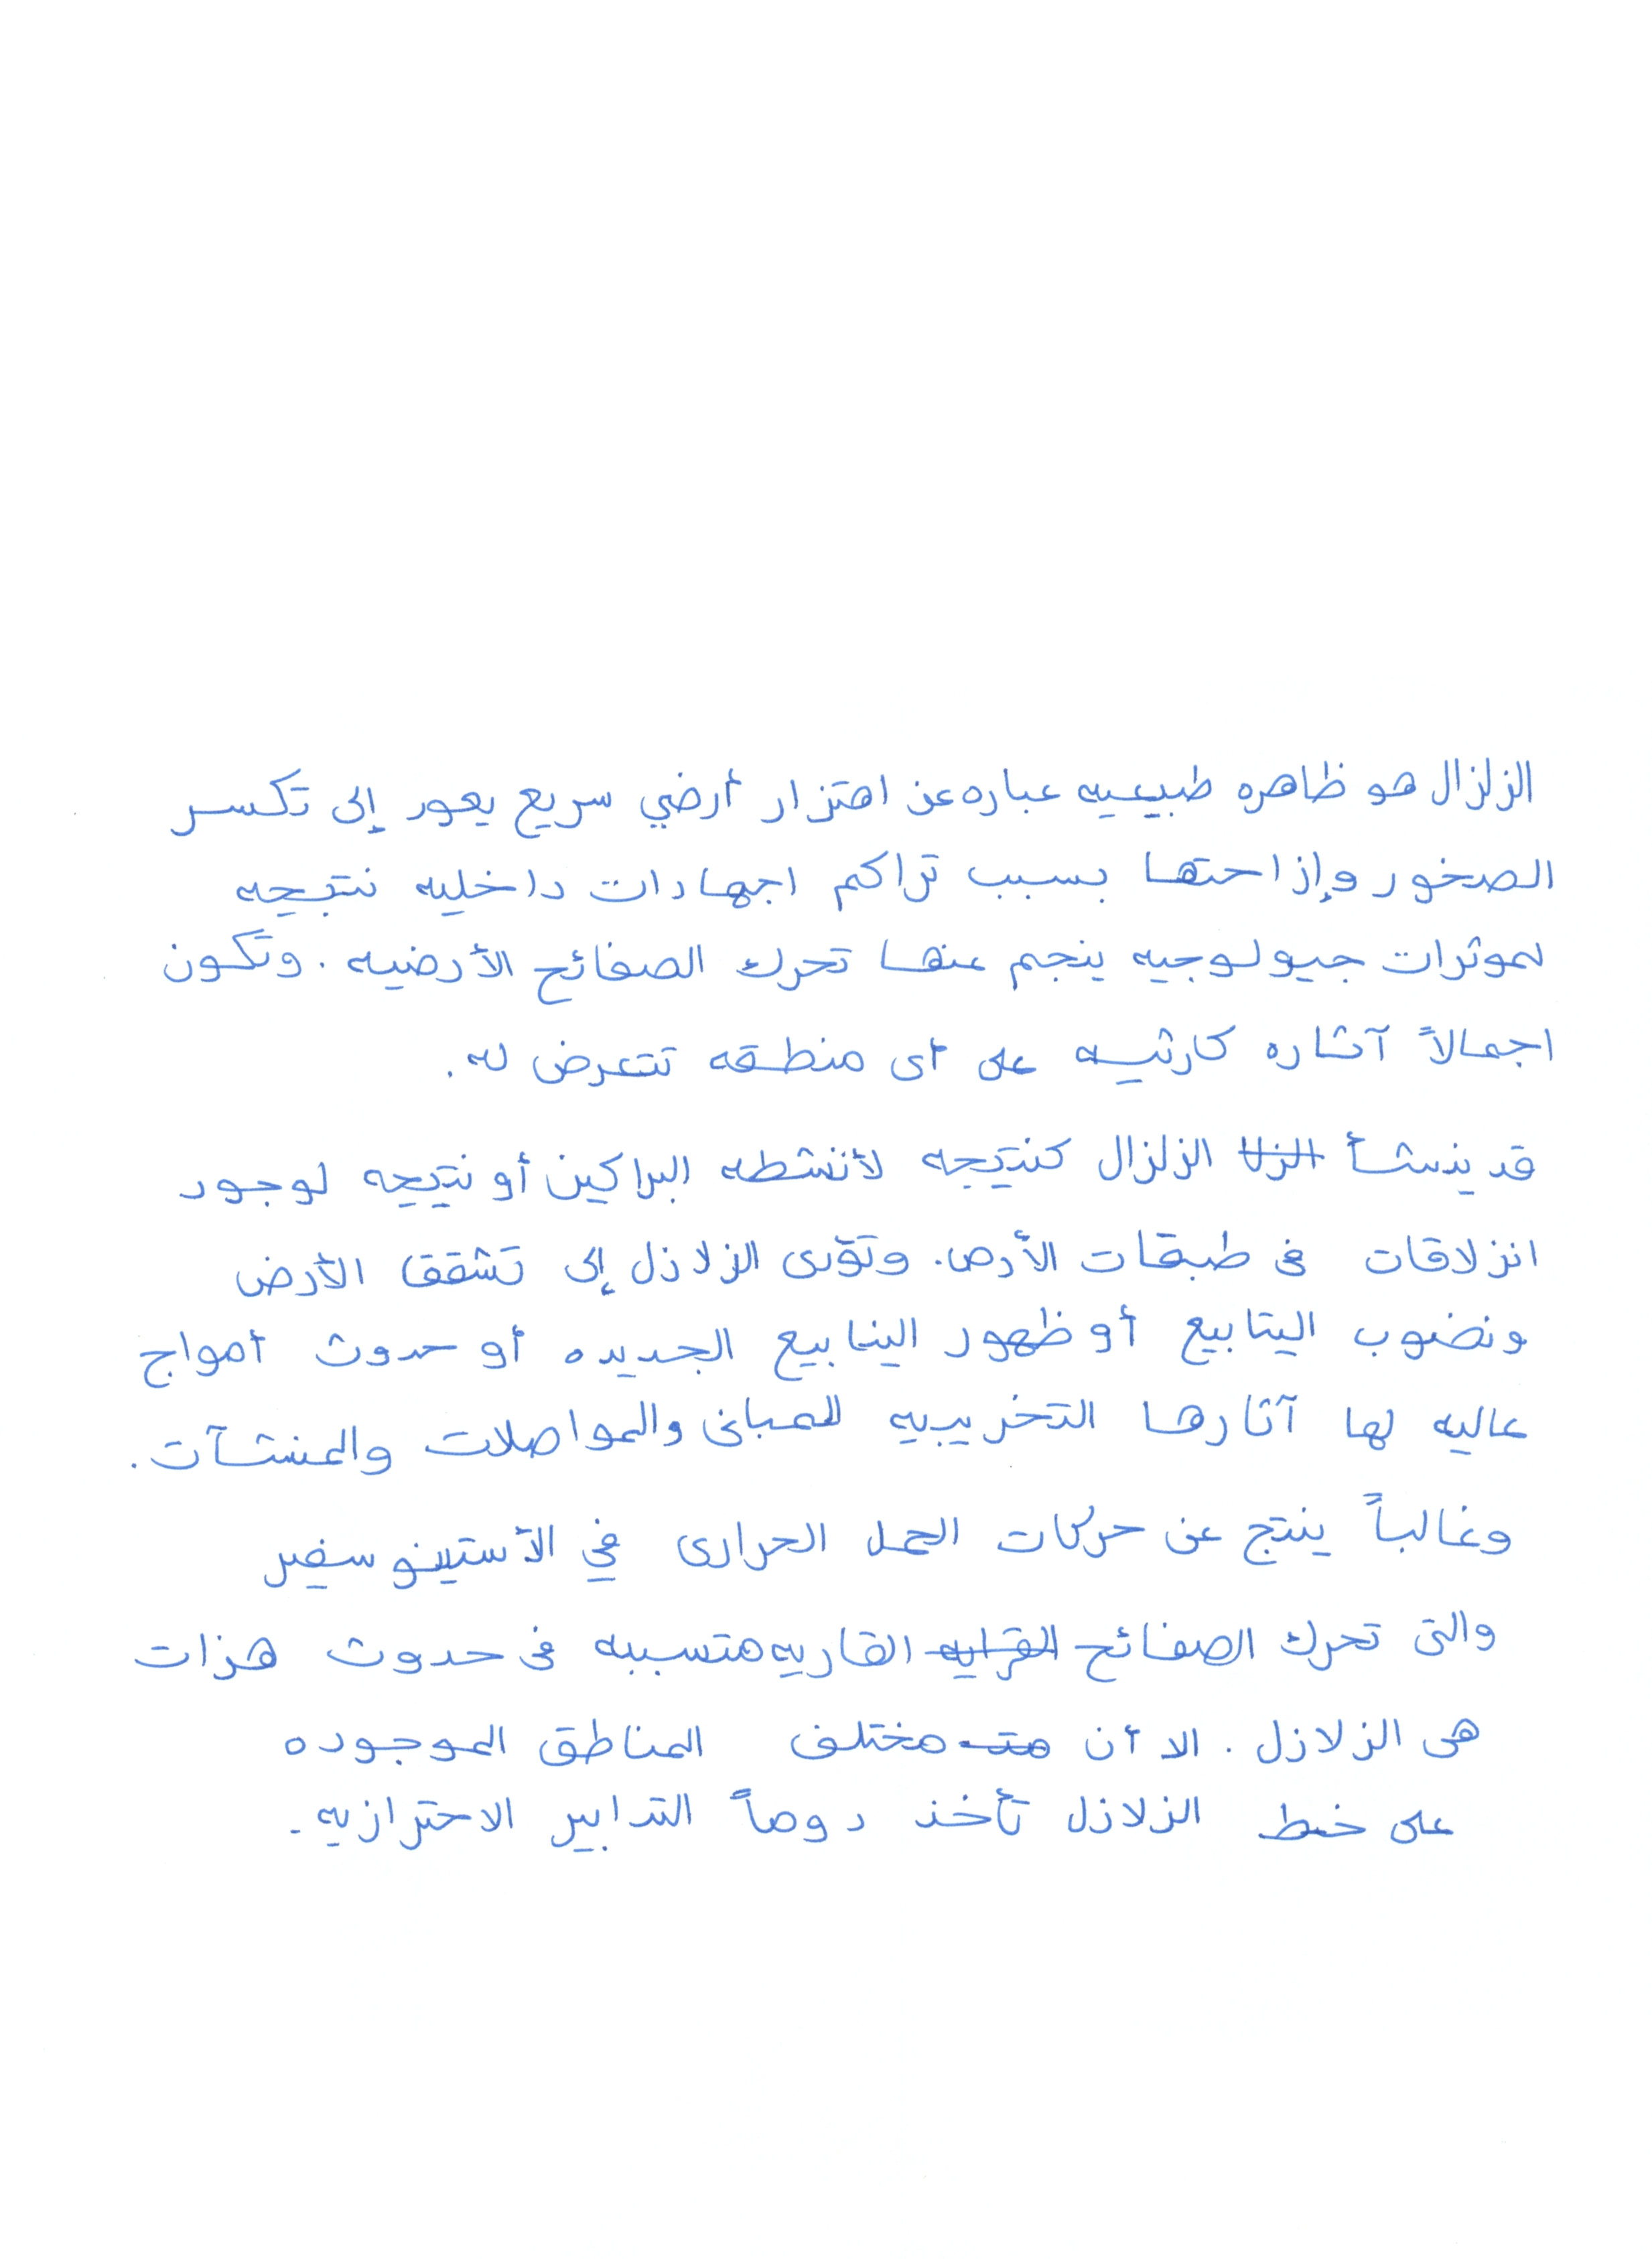 الزلزال هو ظاهره طبيعيه عباره عن اهتزار أرضي سريع يعور إلى تكسر
الصخور وإزاحتها بسبب تراكم اجهادات داخليه نتيجه
لموثرات جيولوجيه ينجم عنها تحرك الصفائح الأرضيه . وتكون
اجمالاً آثاره كارثيه على أى منطقه تتعرض له .
قد ينشأ الزلا الزلزال كنتيجه لأنشطه البراكين أو نتيجه لوجود
انزلاقات فى طبقات الأرص. وتؤدى الزلازل إلى تشقق الأرض
ونضوب الينابيع أو ظهور الينابيع الجديده أو حدوث أمواج
عاليه لها آثارها التخريبيه للمبانى والمواصلات والمنشآت .
وغالباً ينتج عن حركات الحمل الحرارى في الأستينوسفير
والتى تحرك الصفائح القرايه القاريه متسببه فى حدوث هزات
هى الزلازل . الا أن متـ مختلف المناطق الموجوده
على خط الزلازل تأخذ دوماً التدابير الاحترازيه .